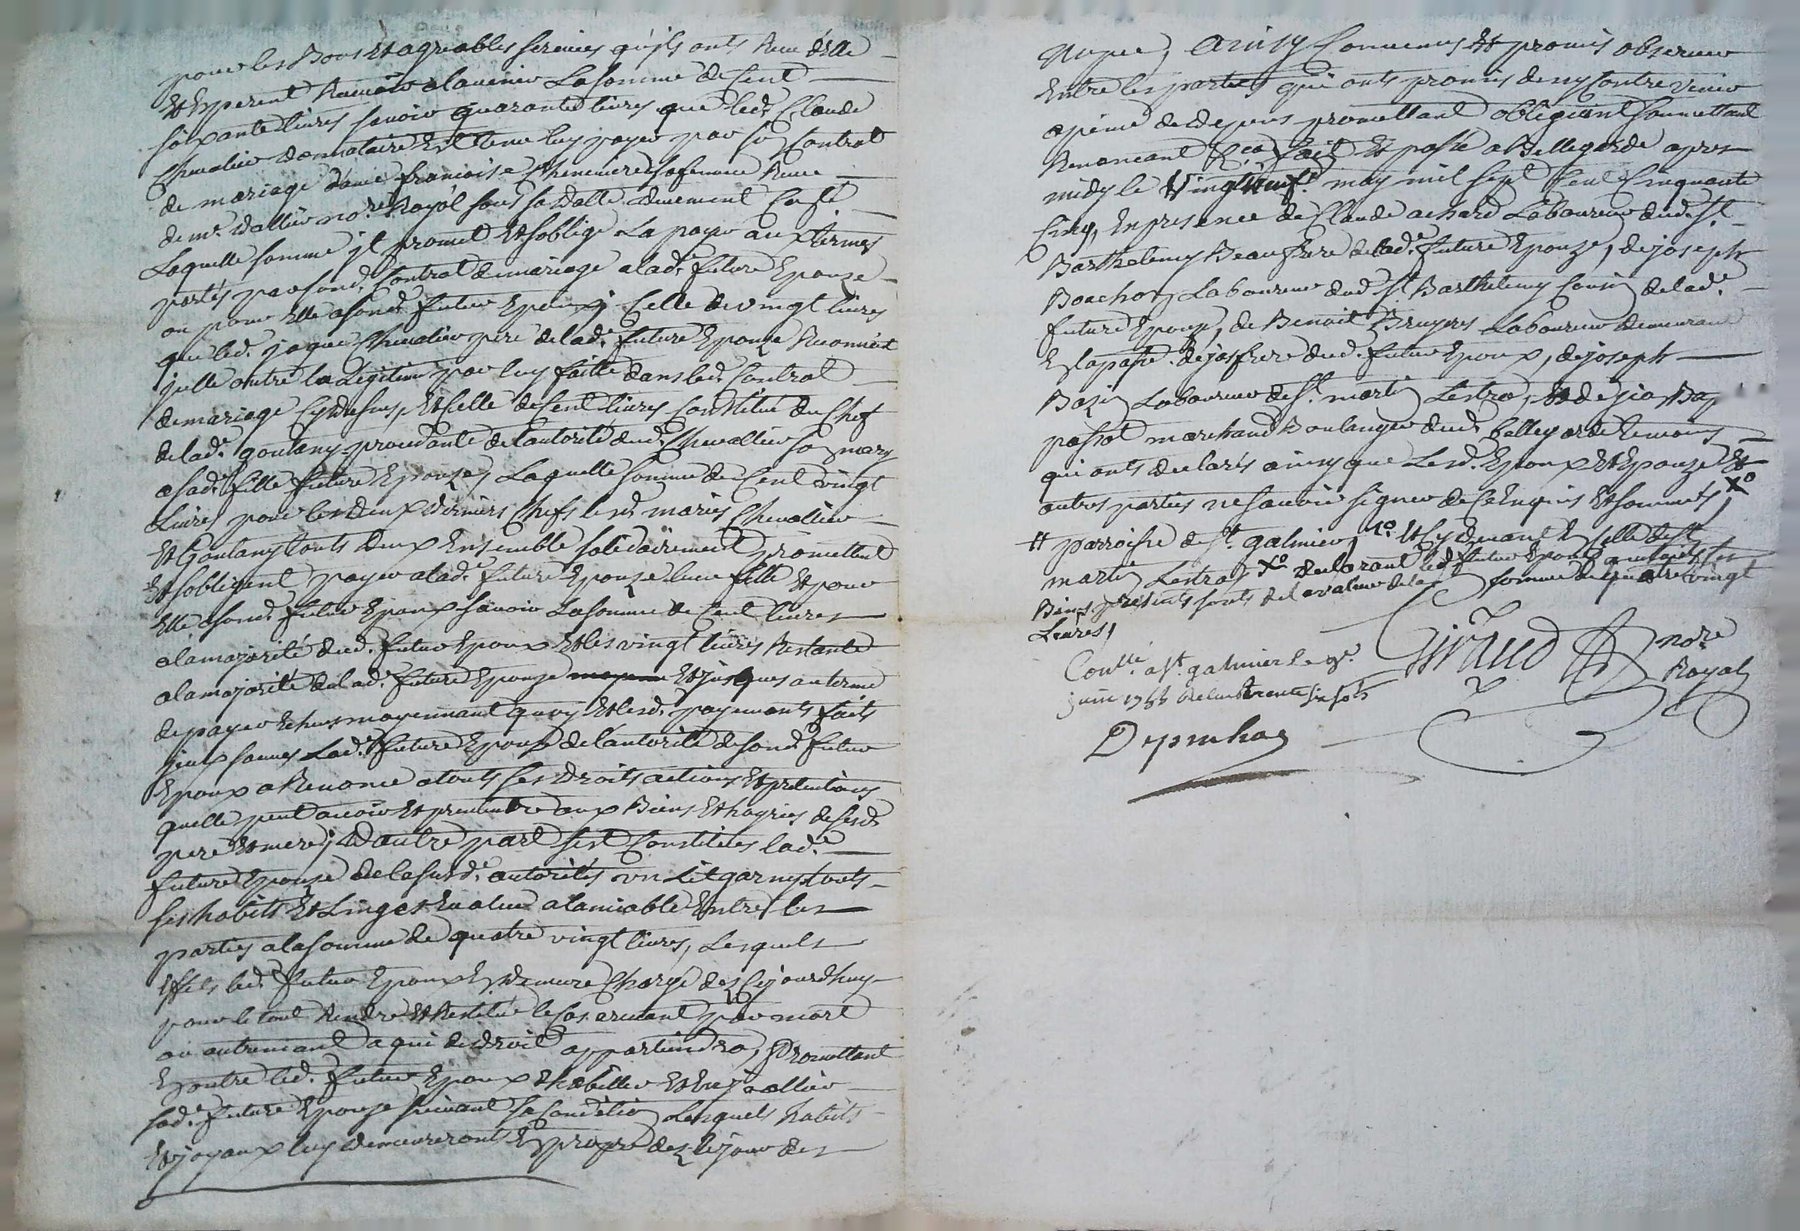 pour les Bons et agreables services qu'jls onts Reçu d'elle
et esperent Reçevoir alavenir La somme de Cent
soixante livres savoir quarante livres que led. Claude
Chevalier donnataire est tenu luy payer par son Contrat
de mariage avec francoise sa femme Reçu
de me. Dallier nore. Royal sous sa datte duement Con.lé
Laquelle somme jl promet et soblige La payer aux termes
portés par sond. Contrat de mariage a lad.e future Epouze
ou pour elle a sond. futur Epoux, Celle de vingt livres
que led. jaque Chevalier pere de lad.e future Epouze
jcelle outre la Legitime par luy faitte dans led. Contrat
de mariage Cy dessus, et Celle de Cent livres Constitué du Chef
de lad.e goutany procedante de lautorité dud. Chevallier son mary
a sad.e fille future Epouze, Laquelle somme de Cent vingt
Livres pour les deux derniers Chefs lesd. mariés Chevallier
et Goutany touts deux Ensemble solidairement promettent
et sobligent payer a lad.e future Epouze leur fille et pour
elle a sond. futur Epoux savoir La somme de Cent livres
a la majorité dud. futur Epoux et les vingt livres Restante
a la majorité de lad.e future Epouze et jusques au terme
de payer moyennant quoy et lesd. payements faits
jceux sommes Lad.e future Epouze de lautorité de sond. futur
Epoux a Renoncé a touts ses droits actions et pretentions
quelle peut avoir et prettendre aux Biens et hoyries de sesd.
pere et mere; d'autre part sest Constituée lad.e
future Epouze de la susd.e autorités un Lit garny touts
ses habits et Linges Evalués a lamiable Entre les
parties a la somme de quatre vingt livres, Lesquels
effets led. futur Epoux En demeure Chargé des Cejourdhuy
pour le tout Rendre et Restitué le Cas arrivant par mort
ou autrement a qui de droit appartiendra, promettant
En outre led. futur Epoux d'habiller et Enjoallier
sad.e future Epouze suivant sa Condition Lesquels habits
et joyaux luy demeureront En propre des le jour des
Nopces, ainsy Convenus et promis observer
Entre les parties qui onts promis de ny Contrevenir
a peine de depens promettant obligeant soumettant
Renoncant &ca, fait et passé a Bellegarde apres
midy le Vingtneuf. may mil sept Cent Cinquante
Cinq, En presence de Claude achard Laboureur dud. St
Barthelemy Beaufrere de lad.e future Epouze, de joseph
Bouchon Laboureur dud. St. Barthelemy Cousin de lad.e
future Epouze, de Benoit Bruyere Laboureur demeurant
frere dud. futur Epoux, de joseph
Bazin Laboureur de St. martin Lestra, et de
passot marchand Boulanger dud. Bellegarde temoins
qui onts declarés ainsy que lesd. Epoux et Epouze et
autres parties ne savoir signer de Ce Enquis et sommés Xo
# parroisse de St. galmier, 10. et Cy devant En Celle de St
martin Lestra, Xo declarant led. futur Epoux que touts ses
Biens presents sonts de la valeur de la somme de quatre vingt
Livres,
Giraud nore
Royal
Conllé a St. galmier le 9e.
juin 1755 Recu trente six sols
Depinhac